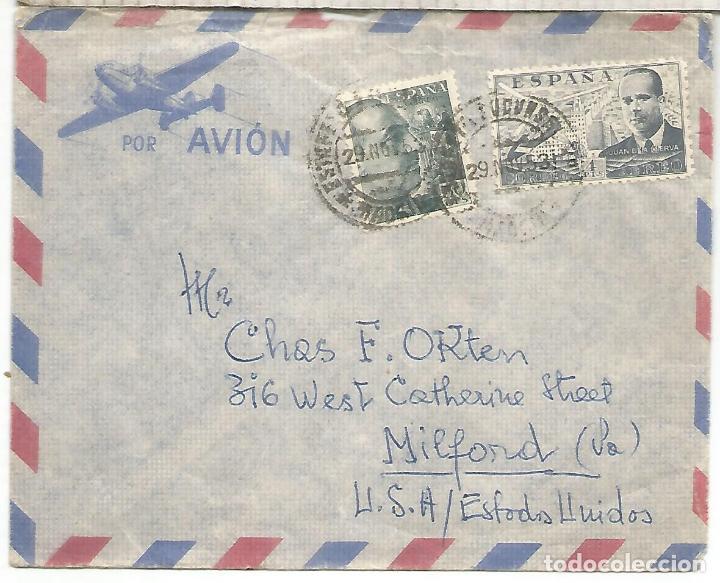 POR AVIÓN
ESPAÑA
29.NOV.5
ESPAÑA
JUAN DE LA CIERVA
29.NOV.5
CORREO
Mr
Chas F. Orten
316 West Catherine Street
Milford (Pa)
U.S.A/Estados Unidos
todocoleccion